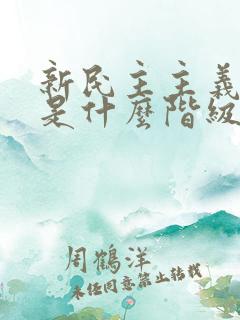 新民主主義
是什麼階級
周鶴洋
未经同意禁止转载